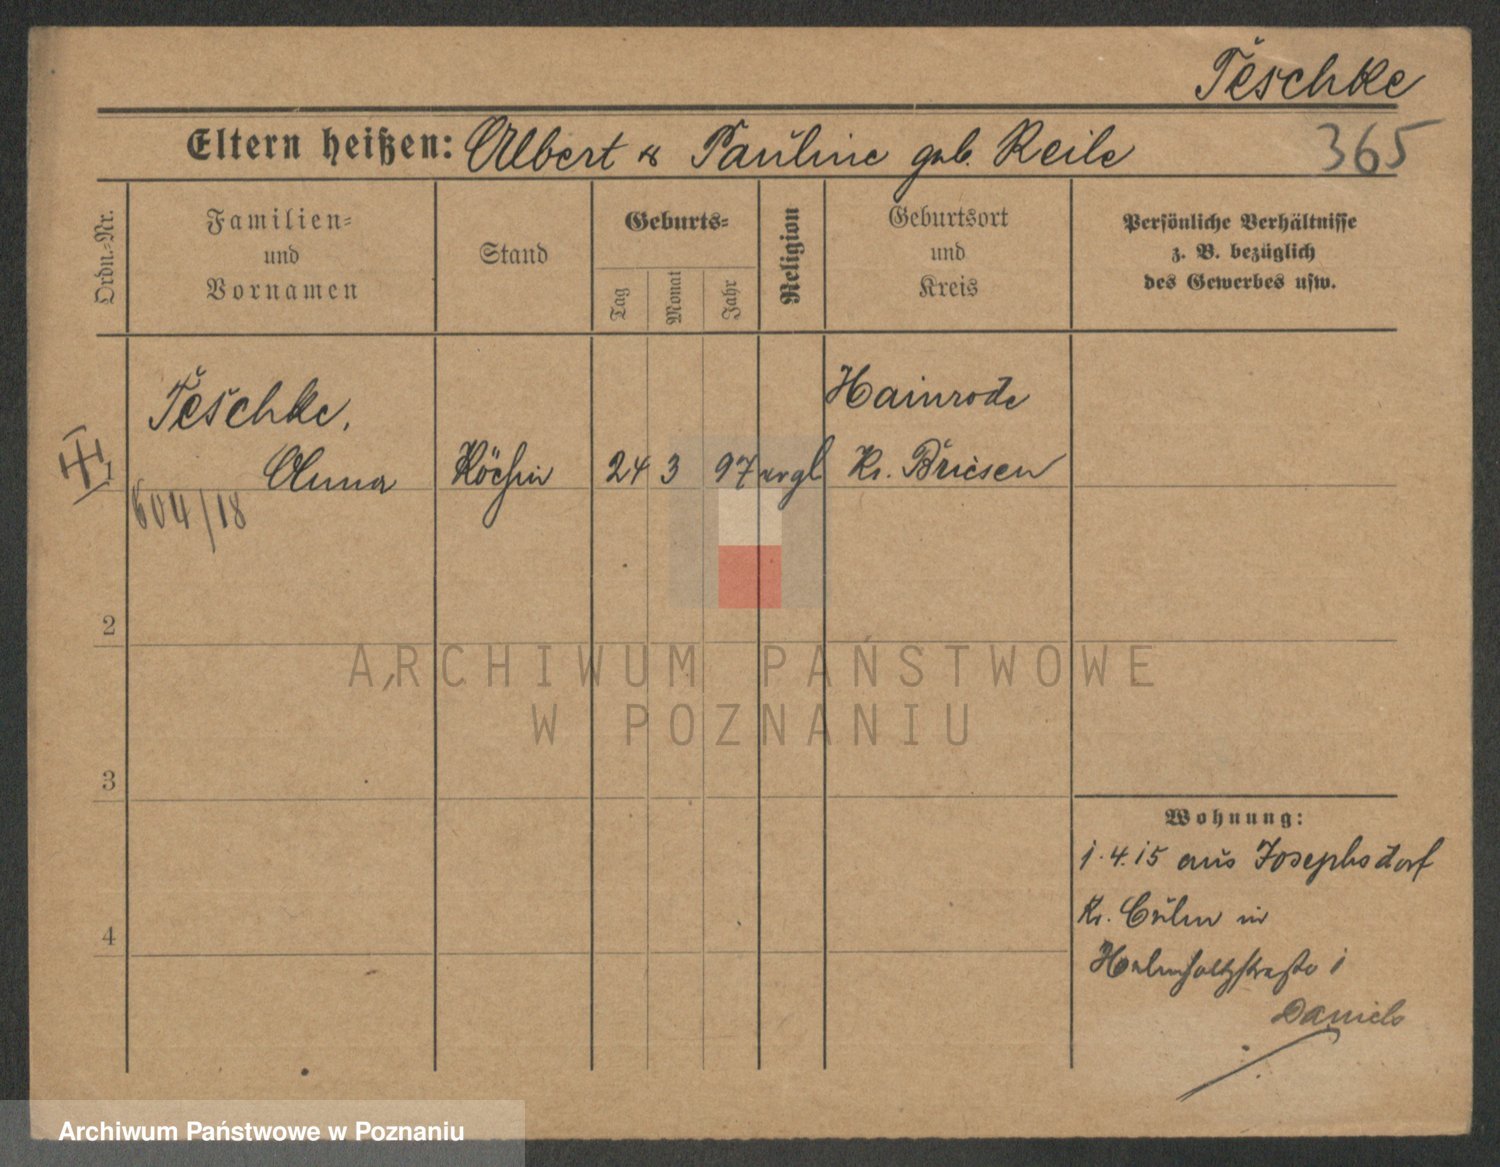 Teschke
Eltern heißen: Albert & Pauline geb. Reile
365
Ordn.-Nr.
Familien-
und
Vornamen
Stand
Geburts-
Tag
Monat
Jahr
Religion
Geburtsort
und
Kreis
Persönliche Verhältnisse
z. B. bezüglich
des Gewerbes usw.
1
Teschke,
Anna
604/18
Köchin
24
3
97
evgl
Hainrode
Kr. Briesen
2
3
4
Wohnung:
1.4.15 aus Josephsdorf
Kr. Culm in
Helmholtzstraße 1
Daniels
ARCHIWUM PAŃSTWOWE
W POZNANIU
Archiwum Państwowe w Poznaniu